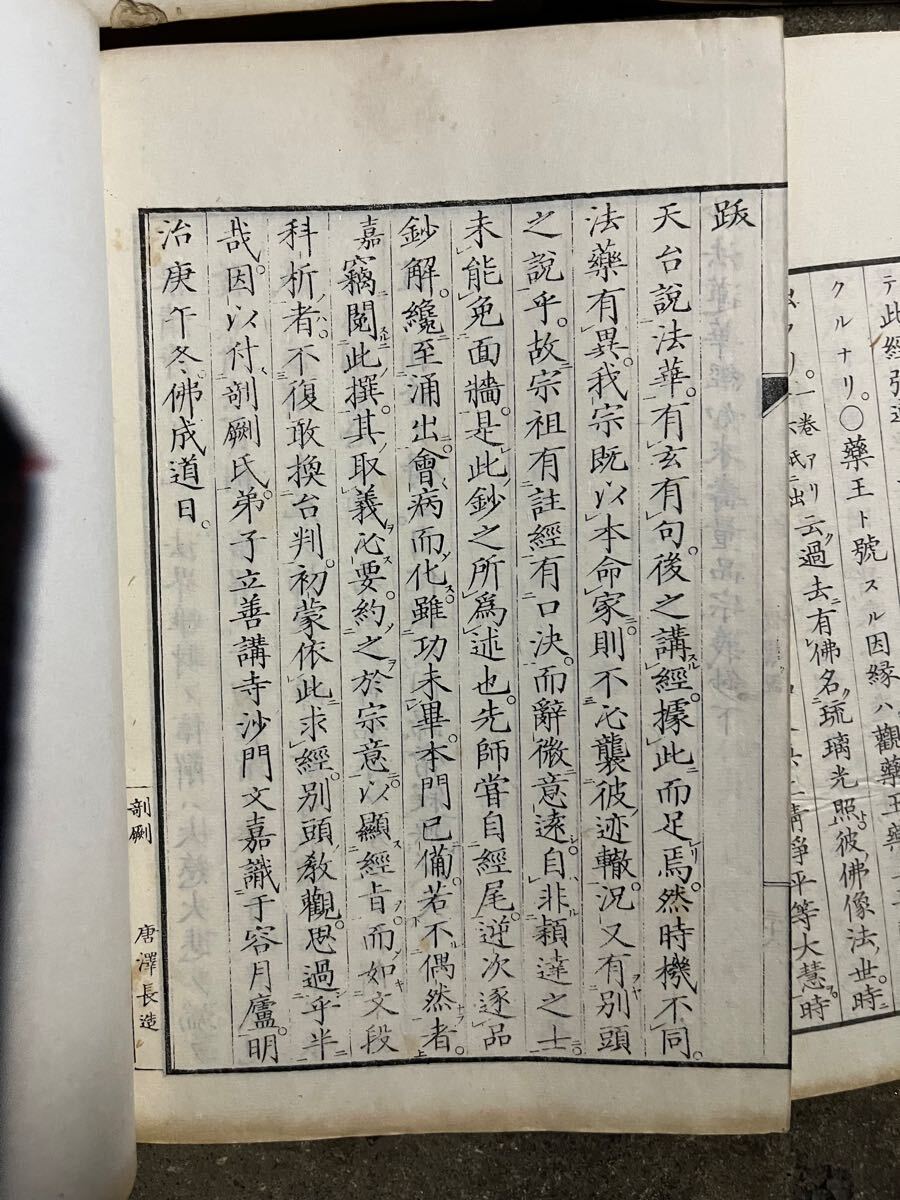 テ此經弘
クルナリ。○藥王ト號スル因緣ハ觀藥王藥
一卷アリ云過去有佛名琉璃光照彼佛像法世時
清淨平等大慧時
跋
天台說法華。有玄有句。後之講經。據此而足焉。然時機不同。
法藥有異。我宗既以本命家。則不必襲彼迹轍。況又有別頭
之說乎。故宗祖有註經有口決。而辭微意遠。自非穎達之士。
未能免面牆。是此鈔之所爲述也。先師嘗自經尾。逆次逐品
鈔解。纔至涌出。會病而化。雖功未畢。本門已備。若不偶然者。
嘉竊閱此撰。其取義必要約之於宗意。以顯經旨。而如文段
科析者。不復敢換台判。初蒙依此求經。別頭敎觀。思過乎半
哉。因以付剞劂氏。弟子立善講寺沙門文嘉識于容月廬。明
治庚午冬。佛成道日。
剞劂
唐澤長造